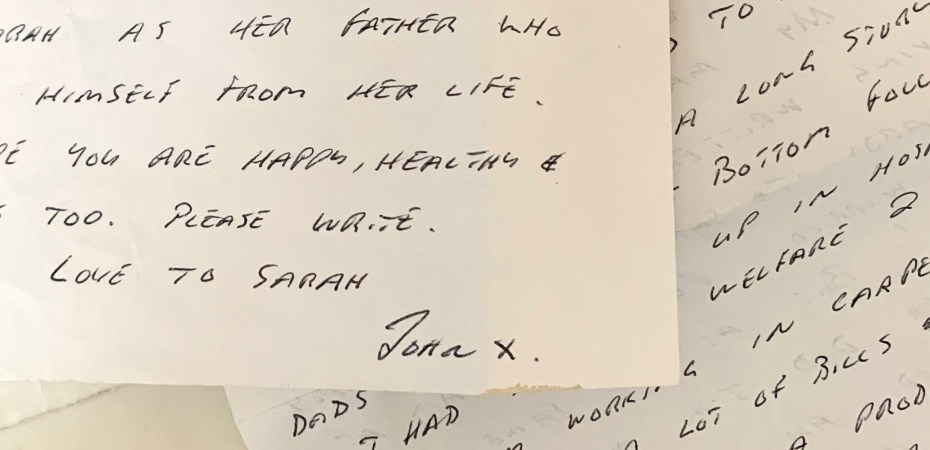 ORAH AS HER FATHER WHO
HIMSELF FROM HER LIFE.
PE YOU ARE HAPPY, HEALTHY &
TOO. PLEASE WRITE.
LOVE TO SARAH
John X.
TO
A LONG STORY
BOTTOM FOLL
UP IN HOS
WELFARE 2
IN CARPE
WORKING
LOT OF BILLS &
A PROD
DADS
I HAD